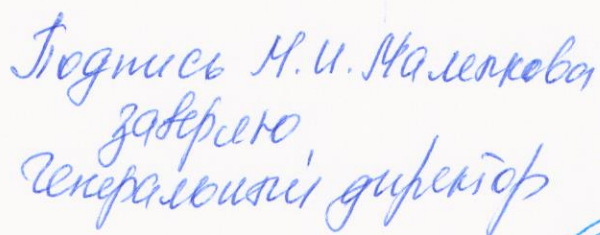 Подпись Н.И. Маленкова
заверяю
Генеральный директор